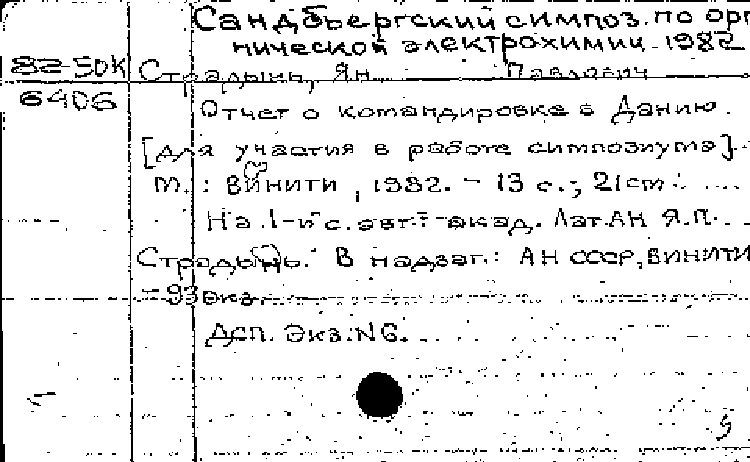 Сандбьергский симпоз. по орг
нической электрохимии. 1982
82-50К Страдынь, Ян Павлович
6406 Отчет о командировке в Данию.
[для участия в работе симпозиума].
М.: ВИНИТИ, 1982. - 13 с.; 21 см.
На 1-й с. авт.: акад. Лат.АН Я.П.
Страдынь. В надзаг.: АН СССР, ВИНИТИ
- 93 экз.
Дсп. Экз. N6.